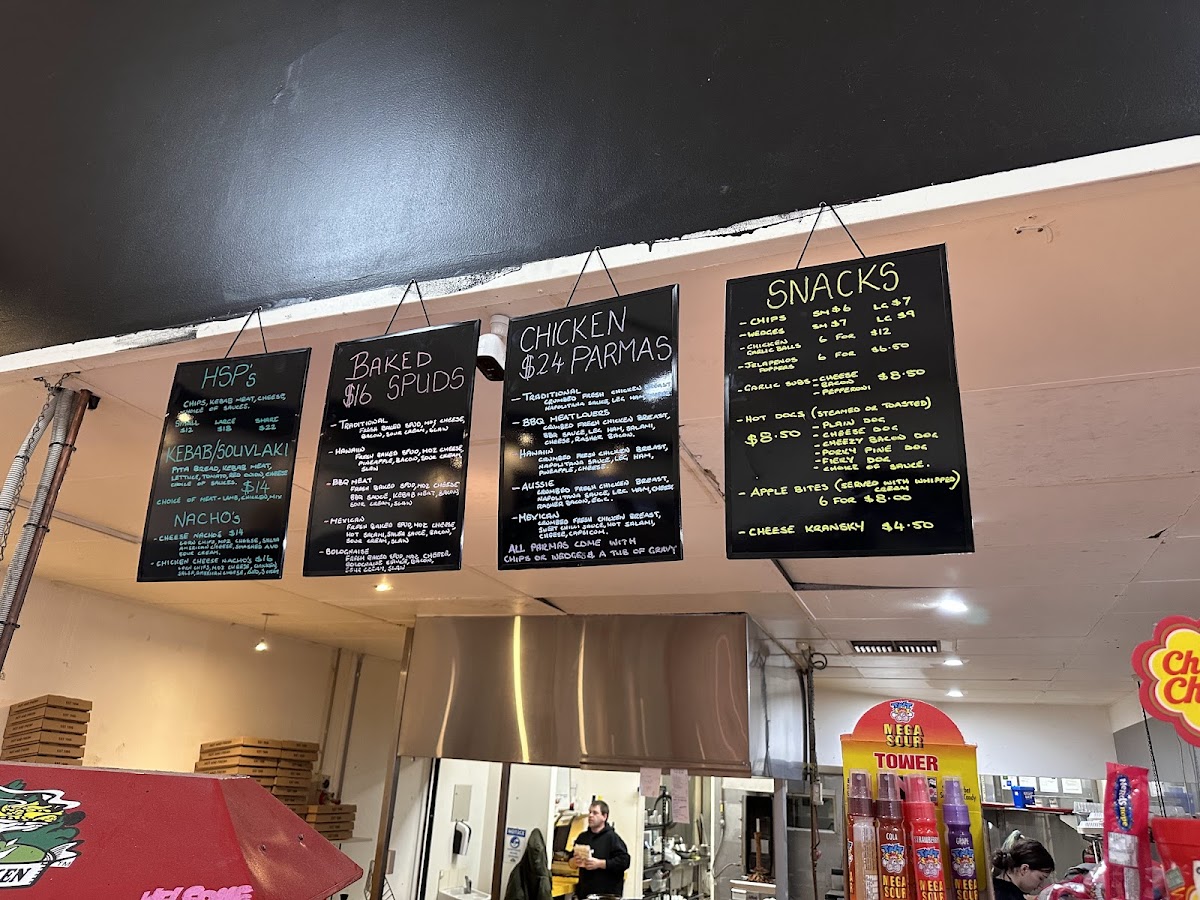 HSP's
CHIPS, KEBAB MEAT, CHEESE,
CHOICE OF SAUCES.
SMALL LARGE SHARE
$12 $18 $22
KEBAB/SOUVLAKI
PITA BREAD, KEBAB MEAT,
LETTUCE, TOMATO, RED ONION, CHEESE
CHOICE OF SAUCES. $14
CHOICE OF MEAT - LAMB, CHICKEN, MIX
NACHO's
- CHEESE NACHO'S $14
CORN CHIPS, MOZ CHEESE, SALSA
AMERICAN CHEESE, SMASHED AVO
SOUR CREAM.
- CHICKEN CHEESE NACHO'S $16
CORN CHIPS, MOZ CHEESE, CHICKEN,
BAKED
$16 SPUDS
- TRADITIONAL
FRESH BAKED SPUD, MOZ CHEESE,
BACON, SOUR CREAM, SLAW
- HAWAIIN
FRESH BAKED SPUD, MOZ CHEESE,
PINEAPPLE, BACON, SOUR CREAM,
SLAW
- BBQ MEAT
FRESH BAKED SPUD, MOZ CHEESE
BBQ SAUCE, KEBAB MEAT, BACON
SOUR CREAM, SLAW
- MEXICAN
FRESH BAKED SPUD, MOZ CHEESE,
HOT SALAMI, SALSA SAUCE, BACON,
SOUR CREAM, SLAW
- BOLOGNAISE
FRESH BAKED SPUD, MOZ CHEESE
BOLOGNAISE SAUCE, BACON,
SOUR CREAM, SLAW
CHICKEN
$24 PARMAS
- TRADITIONAL
CRUMBED FRESH CHICKEN BREAST
NAPOLITANA SAUCE, LEG HAM,
- BBQ MEATLOVERS
CRUMBED FRESH CHICKEN BREAST,
BBQ SAUCE, LEG HAM, SALAMI,
CHEESE, RASHER BACON.
- HAWAIIN
CRUMBED FRESH CHICKEN BREAST,
NAPOLITANA SAUCE, LEG HAM,
PINEAPPLE, CHEESE.
- AUSSIE
CRUMBED FRESH CHICKEN BREAST,
NAPOLITANA SAUCE, LEG HAM, CHEESE
RASHER BACON, EGG.
- MEXICAN
CRUMBED FRESH CHICKEN BREAST,
SWEET CHILLI SAUCE, HOT SALAMI,
CHEESE, CAPSICUM.
ALL PARMAS COME WITH
CHIPS OR WEDGES & A TUB OF GRAVY
SNACKS
- CHIPS SM $6 LG $7
- WEDGES SM $7 LG $9
- CHICKEN
GARLIC BALLS 6 FOR $12
- JALAPENOS
POPPERS 6 FOR $6.50
- GARLIC SUBS - CHEESE $8.50
- BACON
- PEPPERONI
- HOT DOGS (STEAMED OR TOASTED)
$8.50 - PLAIN DOG
- CHEESE DOG
- CHEEZY BACON DOG
- PORKY PINE DOG
- FIERY DOG
- CHOICE OF SAUCE.
- APPLE BITES (SERVED WITH WHIPPED
CREAM)
6 FOR $8.00
- CHEESE KRANSKY $4.50
TNT
MEGA
SOUR
TOWER
COLA
STRAWBERRY
GRAPE
MEGA
SOUR
MEGA
SOUR
MEGA
SOUR
WELCOME